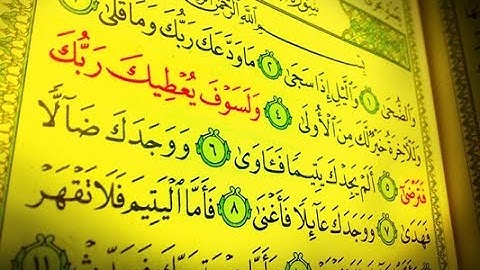 بِسْمِ اللَّهِ الرَّحْمَٰنِ الرَّ
وَالضُّحَىٰ ١ وَاللَّيْلِ إِذَا سَجَىٰ ٢ مَا وَدَّعَكَ رَبُّكَ وَمَا قَلَىٰ ٣
وَلَلْآخِرَةُ خَيْرٌ لَّكَ مِنَ الْأُولَىٰ ٤ وَلَسَوْفَ يُعْطِيكَ رَبُّكَ
فَتَرْضَىٰ ٥ أَلَمْ يَجِدْكَ يَتِيمًا فَآوَىٰ ٦ وَوَجَدَكَ ضَالًّا
فَهَدَىٰ ٧ وَوَجَدَكَ عَائِلًا فَأَغْنَىٰ ٨ فَأَمَّا الْيَتِيمَ فَلَا تَقْهَرْ